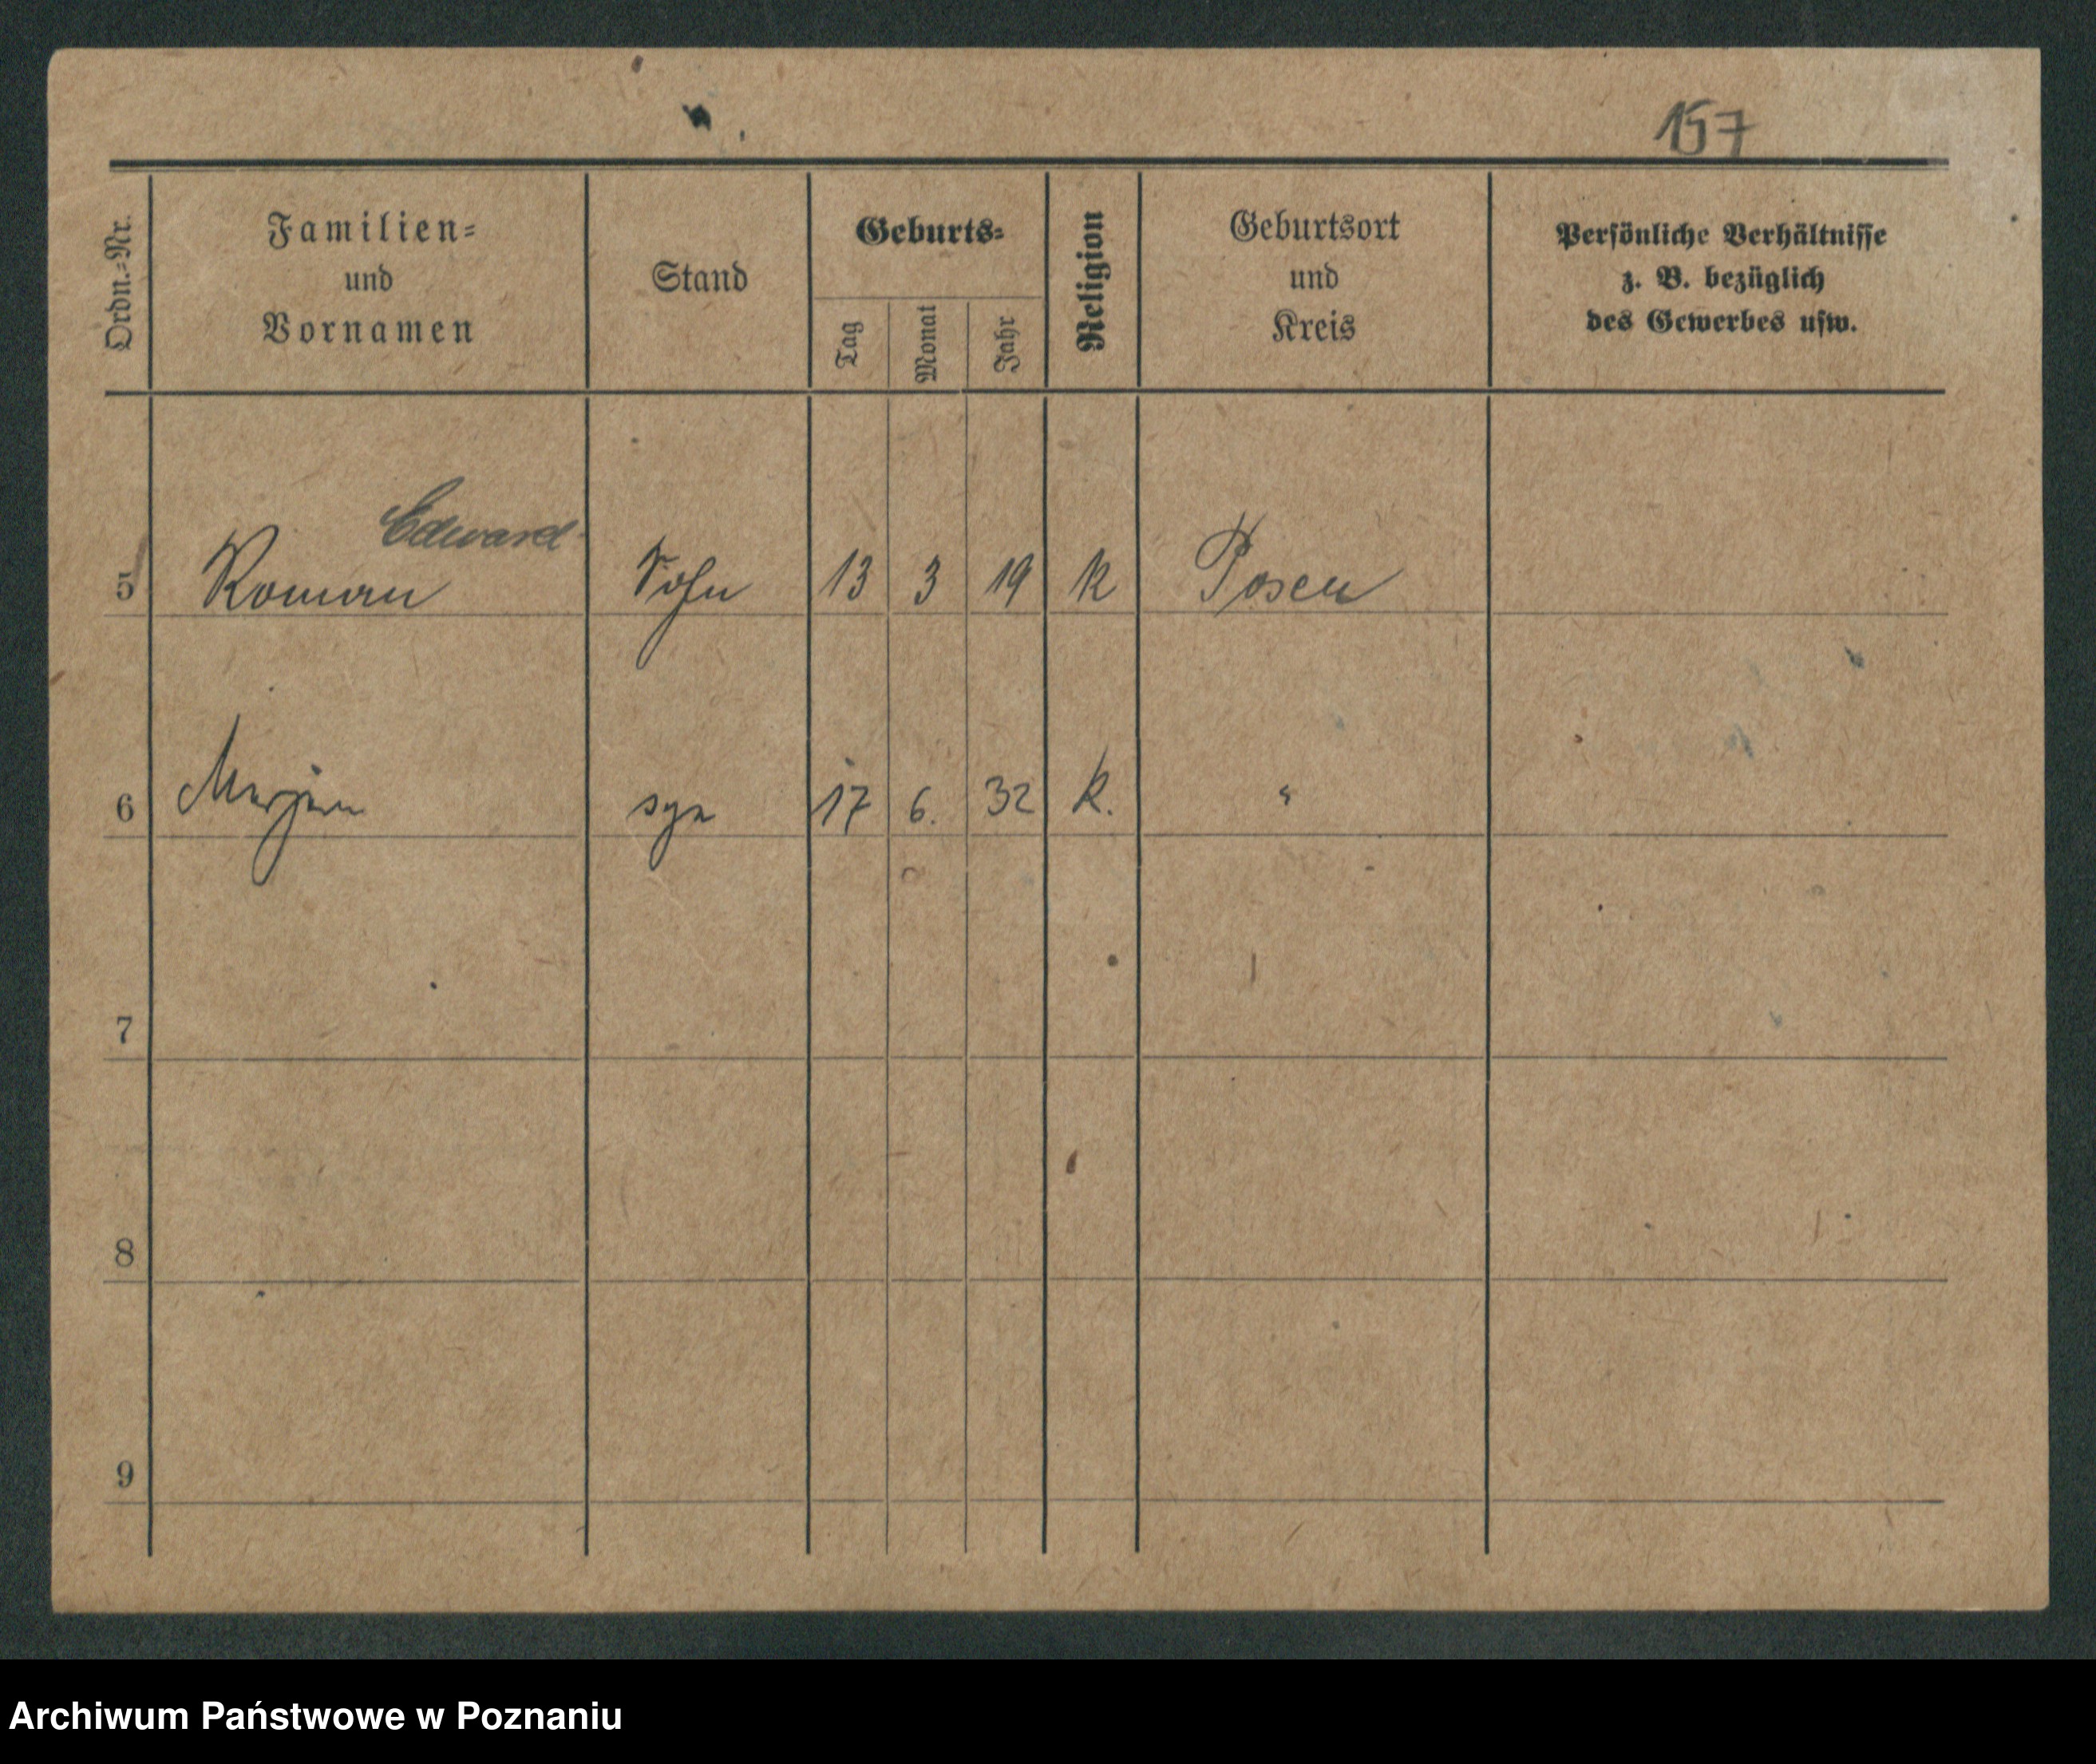 157
Ordn.=Nr.
Familien=
und
Vornamen
Stand
Geburts=
Tag
Monat
Jahr
Religion
Geburtsort
und
Kreis
Persönliche Verhältnisse
z. B. bezüglich
des Gewerbes usw.
Edward
5 Roman Sohn 13 3 19 k Posen
6 Marjan syn 17 6. 32 k. "
7
8
9
Archiwum Państwowe w Poznaniu